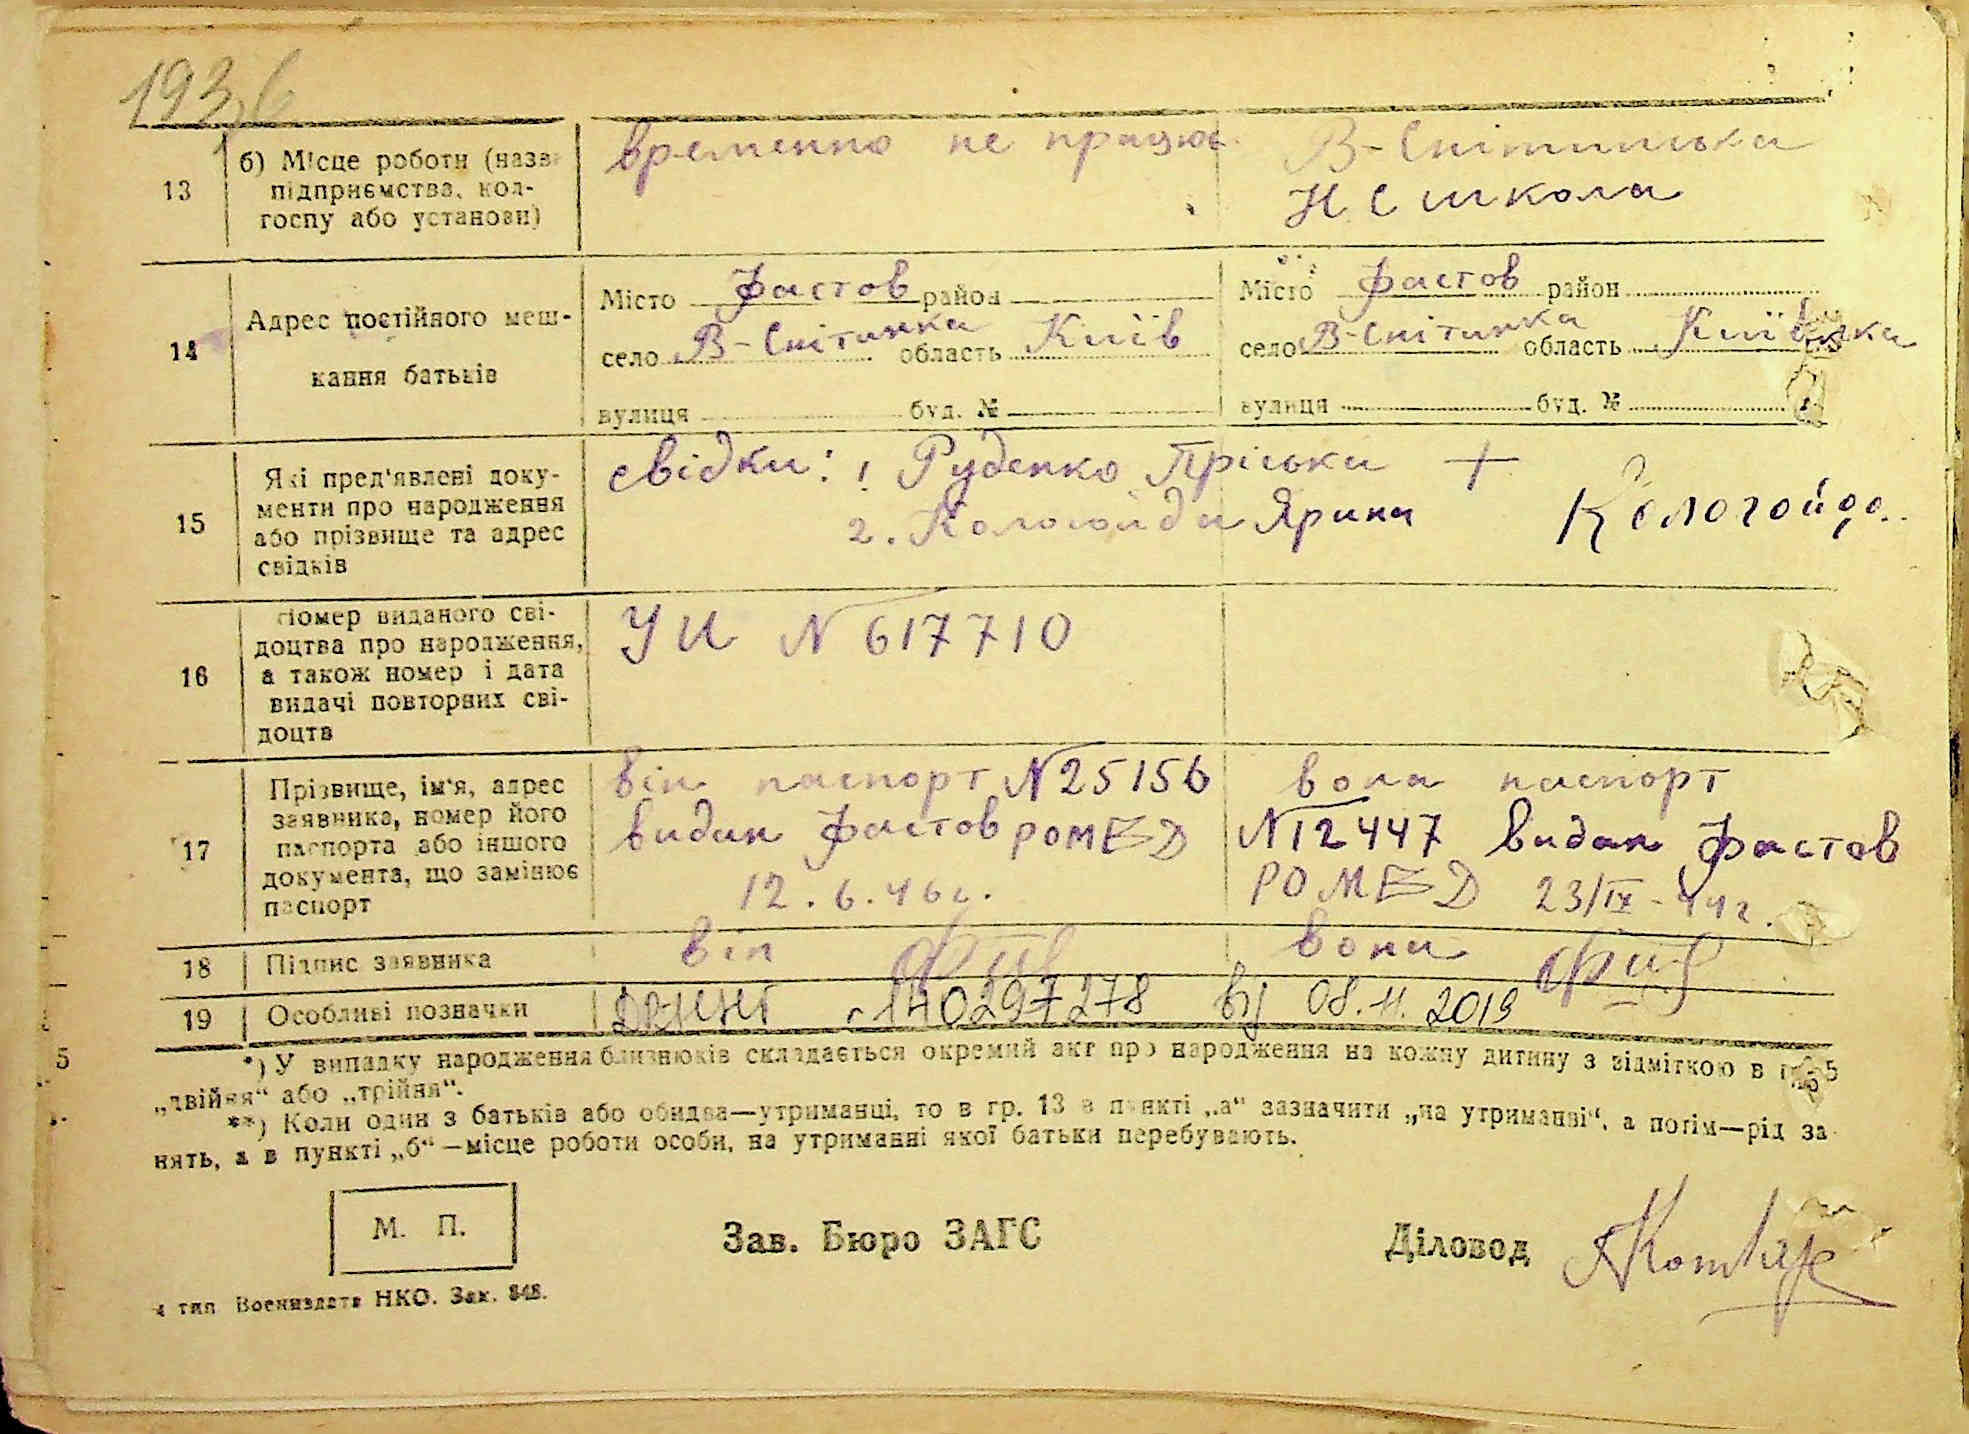 193
13 б) Місце роботи (назва підприємства, кол-госпу або установи) временно не працює В-Снітинська
НС школа
14 Адрес постійного меш-кання батьків
Місто Фастов район Місто Фастов район
село В-Снітинка область Київ село В-Снітинка область Київська
вулиця буд. № вулиця буд. №
15 Які пред'явлені доку-
менти про народження
або прізвище та адрес
свідків
свідки: 1 Руденко Пріська +
2. Кологойда Ярина Кологойда
16 Номер виданого сві-
доцтва про народження,
а також номер і дата
видачі повторних сві-
доцтв
УИ N 617710
17 Прізвище, ім'я, адрес
заявника, номер його
паспорта або іншого
документа, що замінює
паспорт
він паспорт N 25156
видан Фастов РОМВД
12.6.46г.
вона паспорт
N 12447 видан Фастов
РОМВД 23/IX-44г.
18 Підпис заявника він вона
19 Особливі позначки 140297278 від 08.11.2019
*) У випадку народження близнюків складається окремий акт про народження на кожну дитину з відміткою в гр. 5
„двійня“ або „трійня“.
**) Коли один з батьків або обидва—утриманці, то в гр. 13 в пункті „а“ зазначити „на утриманні“, а потім—рід за-
нять, а в пункті „б“—місце роботи особи, на утриманні якої батьки перебувають.
М. П.
Зав. Бюро ЗАГС
Діловод
4 тип Воениздата НКО. Зак. 848.
5